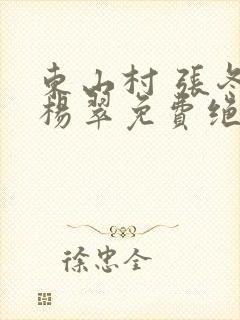 東山村 張冬
楊翠免費絕
徐忠全